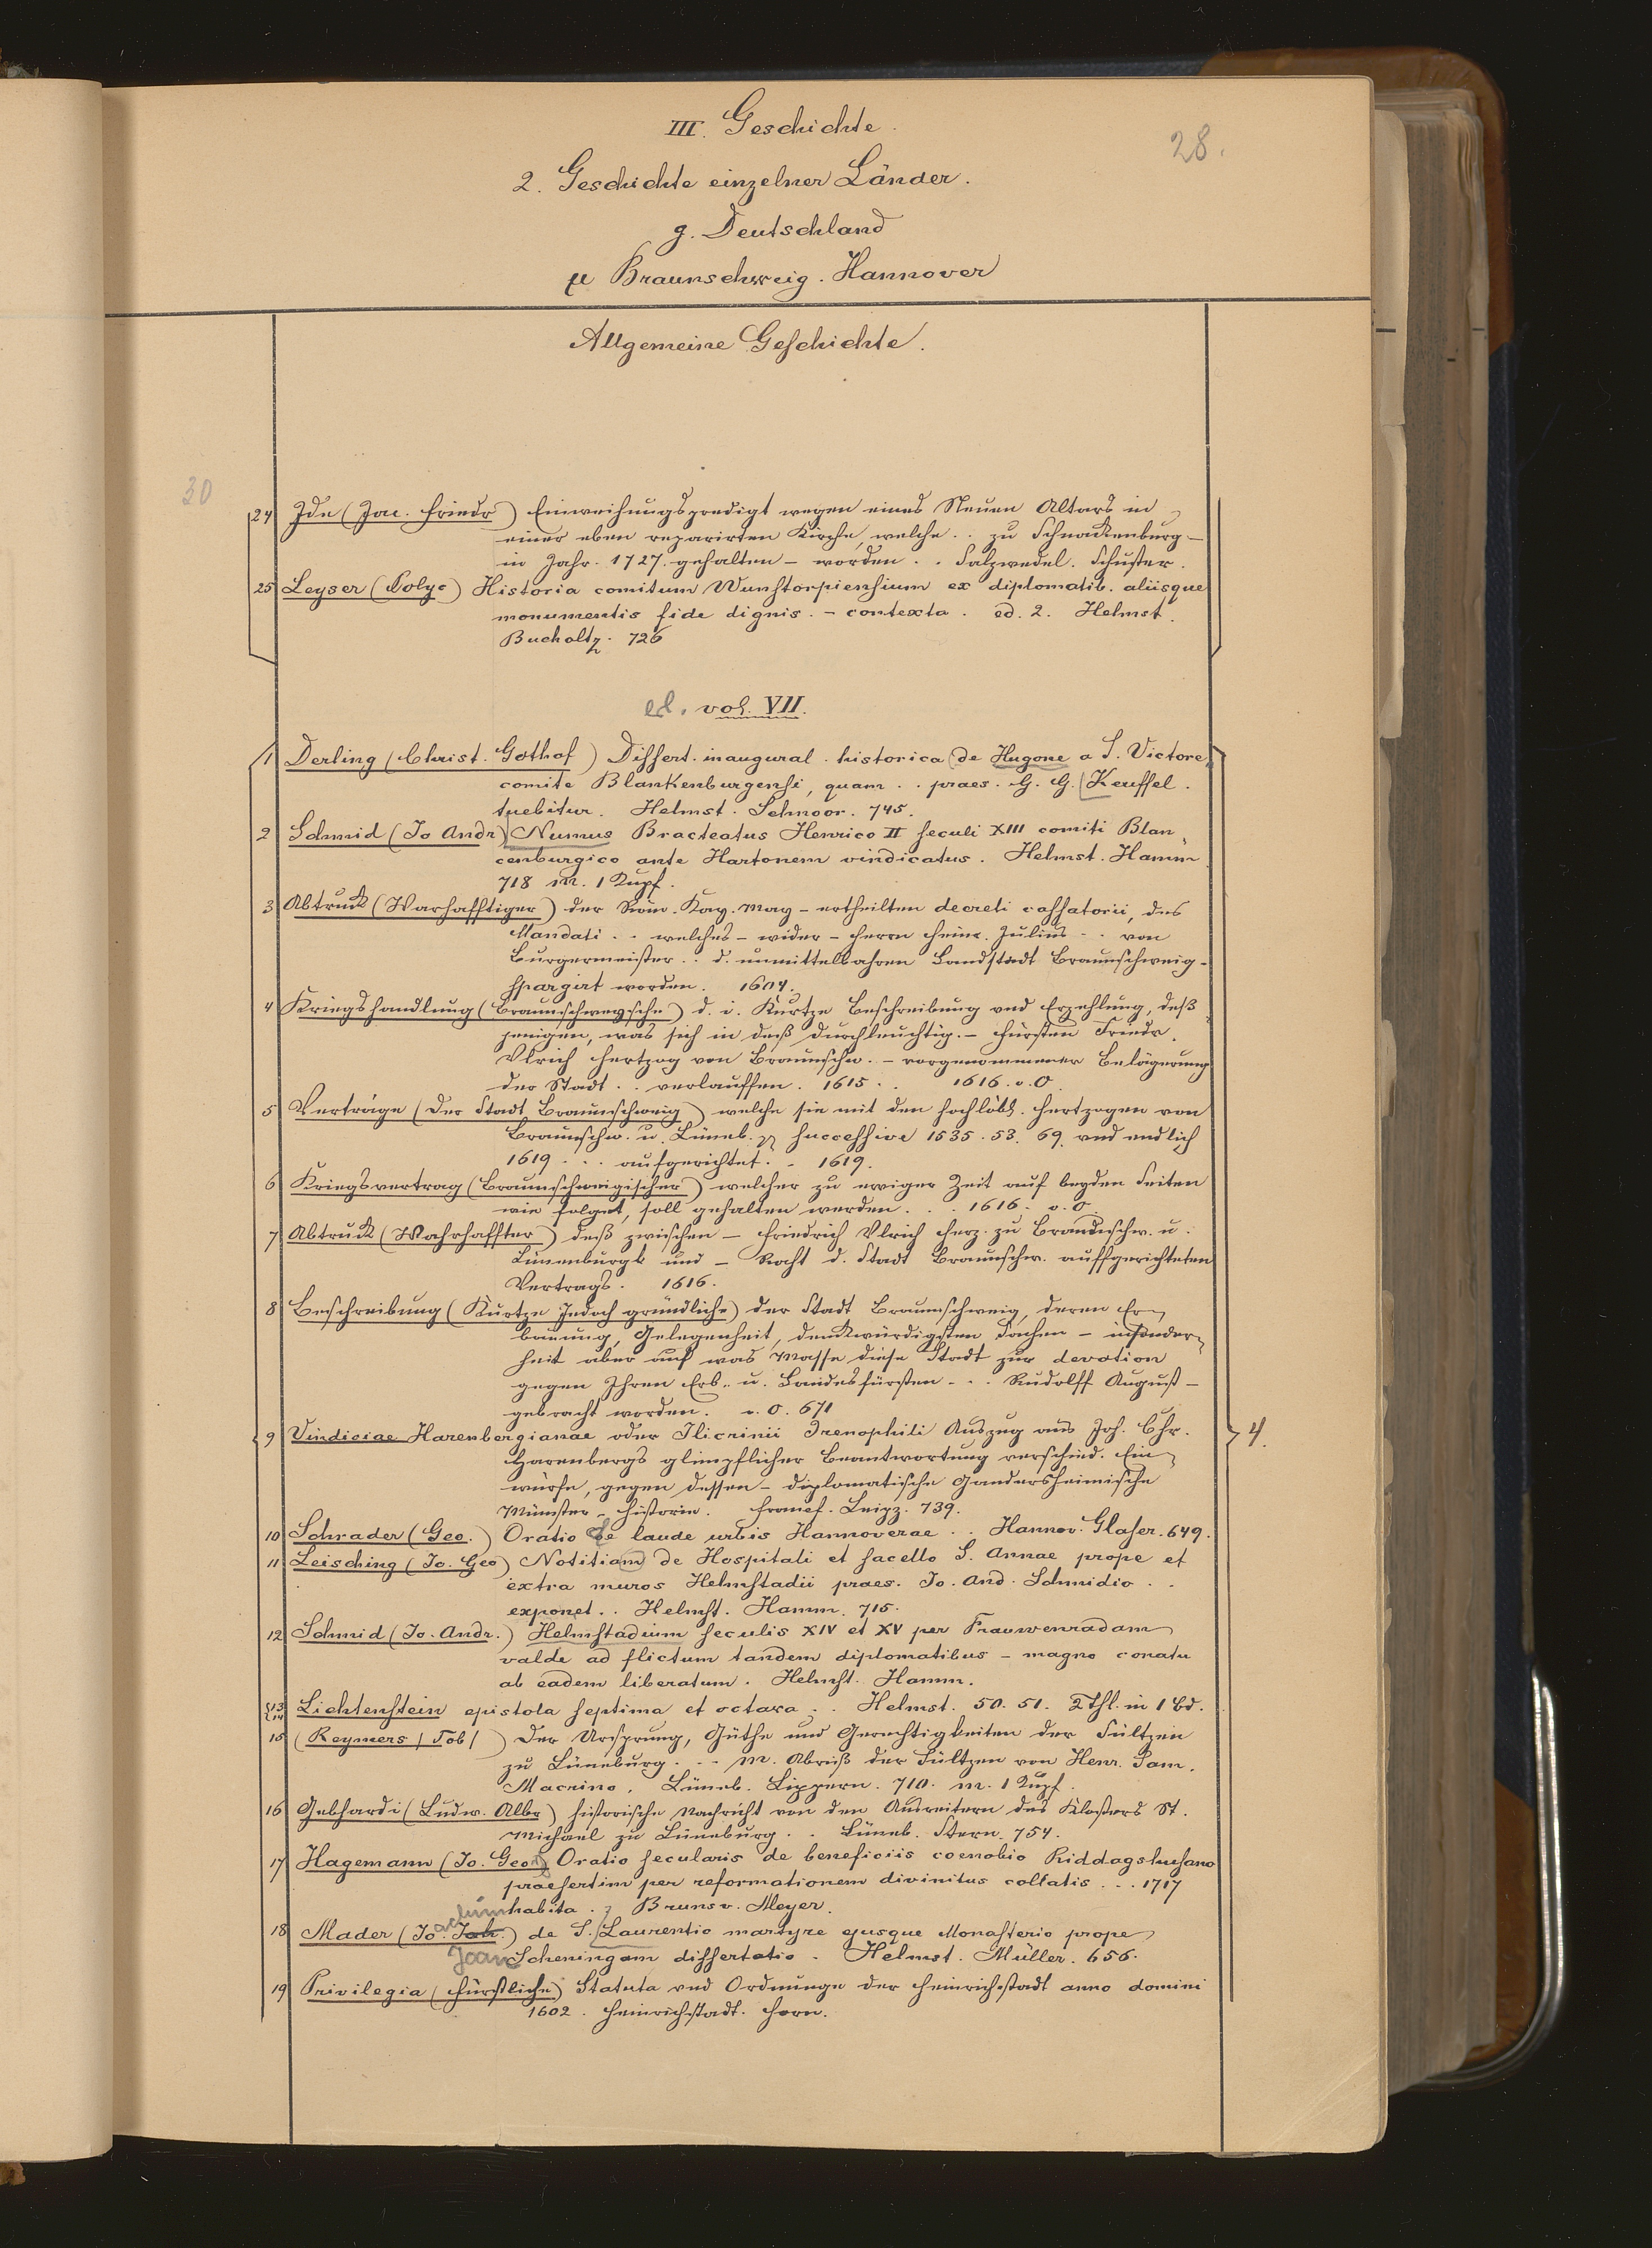 III. Geschichte.
28.
2. Geschichte einzelner Länder.
g. Deutschland
μ Braunschweig. Hannover
Allgemeine Geschichte.
30
24 Ide (Jac. Friedr) Einweihungspredigt wegen eines Neuen Altars in
einer eben reparirten Kirche, welche .. zu Schnackenburg –
in Jahr. 1727. gehalten – worden .. Salzwedel. Schuster.
25 Leyser (Polyc) Historia comitum Wunstorpiensium ex diplomatib. aliisque
monumentis fide dignis. – contexta. ed. 2. Helmst.
Bucholtz. 726
ed. vol. VII.
1 Derling (Christ. Gothof) Dissert. inaugural. historica de Hugone a S. Victore,
comite Blankenburgensi, quam .. praes. G. G. Keuffel.
tuebitur. Helmst. Schnoor. 745.
2 Schmid (Jo Andr) Numus Bracteatus Henrico II seculi XIII comiti Blan
cenburgico ante Hartonem vindicatus. Helmst. Hamm
718 m. 1 Kupf.
3 Abtruck (Warhafftiger) der Röm. Kay. May – ertheilten decreti cassatorii, des
Mandati .. welches – wider – Herrn Heinr. Julius .. von
Burgermeister .. d. unmittelbahren Landstadt Braunschweig –
spargirt worden. 1604.
4 Kriegshandlung (Braunschwegsche) d. i. Kurtze Beschreibung vnd Erzehlung, deß
jenigen, was sich in deß Durchleuchtig. – Fürsten Friedr.
Vlrich Hertzog von Braunschw. – vorgenommener Belägerung
der Stadt .. verlauffen. 1615 .. 1616. o. O.
5 Verträge (Der Stadt Braunschweig) welche sie mit den hochlöbl. Hertzogen von
Braunschw. u. Lüneb. successive 1535. 53. 69. vnd endlich
1619 ... aufgerichtet. – 1619.
6 Kriegsvertrag (Braunschweigischer) welcher zu ewiger Zeit auf beyden Seiten
wie folget, soll gehalten werden ... 1616. o. O.
7 Abtruck (Wahrhaffter) deß zwischen – Friedrich Vlrich Herz. zu Braunschw. u.
Lünenburgk und – Raht d. Stadt Braunschw. auffgerichteten
Vertrags. 1616.
8 Beschreibung (Kurtze Jedoch gründliche) der Stadt Braunschweig, deren Er
bauung, Gelegenheit, denckwürdigsten Sachen – insonder
heit aber auf was Masse diese Stadt zur devotion
gegen Ihren Erb- u. Landesfürsten ... Rudolff August –
gebracht worden. o. O. 671
9 Vindiciae Harenbergianae oder Ilicrinii Irenophili Auszug aus Joh. Chr.
4.
Harenbergs glimpflicher Beantwortung verschied. Ein
würfe, gegen dessen – diplomatische Gandersheimische
Münster-Historie. Francf. Leipz. 739.
10 Schrader (Geo.) Oratio de laude urbis Hannoverae .. Hannov. Glaser. 649.
11 Leisching (Jo. Geo) Notitiam de Hospitali et sacello S. Annae prope et
extra muros Helmstadii praes. Jo. And. Schmidio ..
exponet .. Helmst. Hamm. 715.
12 Schmid (Jo. Andr.) Helmstadium seculis XIV et XV per Frauwenradam
valde ad flictum tandem diplomatibus – magno conatu
ab eadem liberatum. Helmst. Hamm.
13 14 Lichtenstein epistola septima et octava .. Helmst. 50. 51. 2 Thl. in 1 Bd.
15 (Reymers / Tob /) Der Ursprung, Güthe und Gerechtigkeiten der Sültzen
zu Lüneburg ... m. Abriß der Sültzen von Henr. Sam.
Macrino. Lüneb. Lippern. 710. m. 1 Kupf.
16 Gebhardi (Ludw. Albr) historische Nachricht von den Ausreitern des Klosters St.
Michael zu Lüneburg .. Lüneb. Stern. 754.
17 Hagemann (Jo. Geo) Oratio secularis de beneficiis coenobio Riddagshusano
praesertim per reformationem divinitus collatis ... 1717
habita. Brunsv. Meyer.
18 Mader (Joachim Joan) de S. Laurentio martyre ejusque Monasterio prope
Scheningam dissertatio. Helmst. Müller. 656.
19 Privilegia (Fürstliche) Statuta vnd Ordnunge der Heinrichstadt anno domini
1602. Heinrichstadt. Horn.